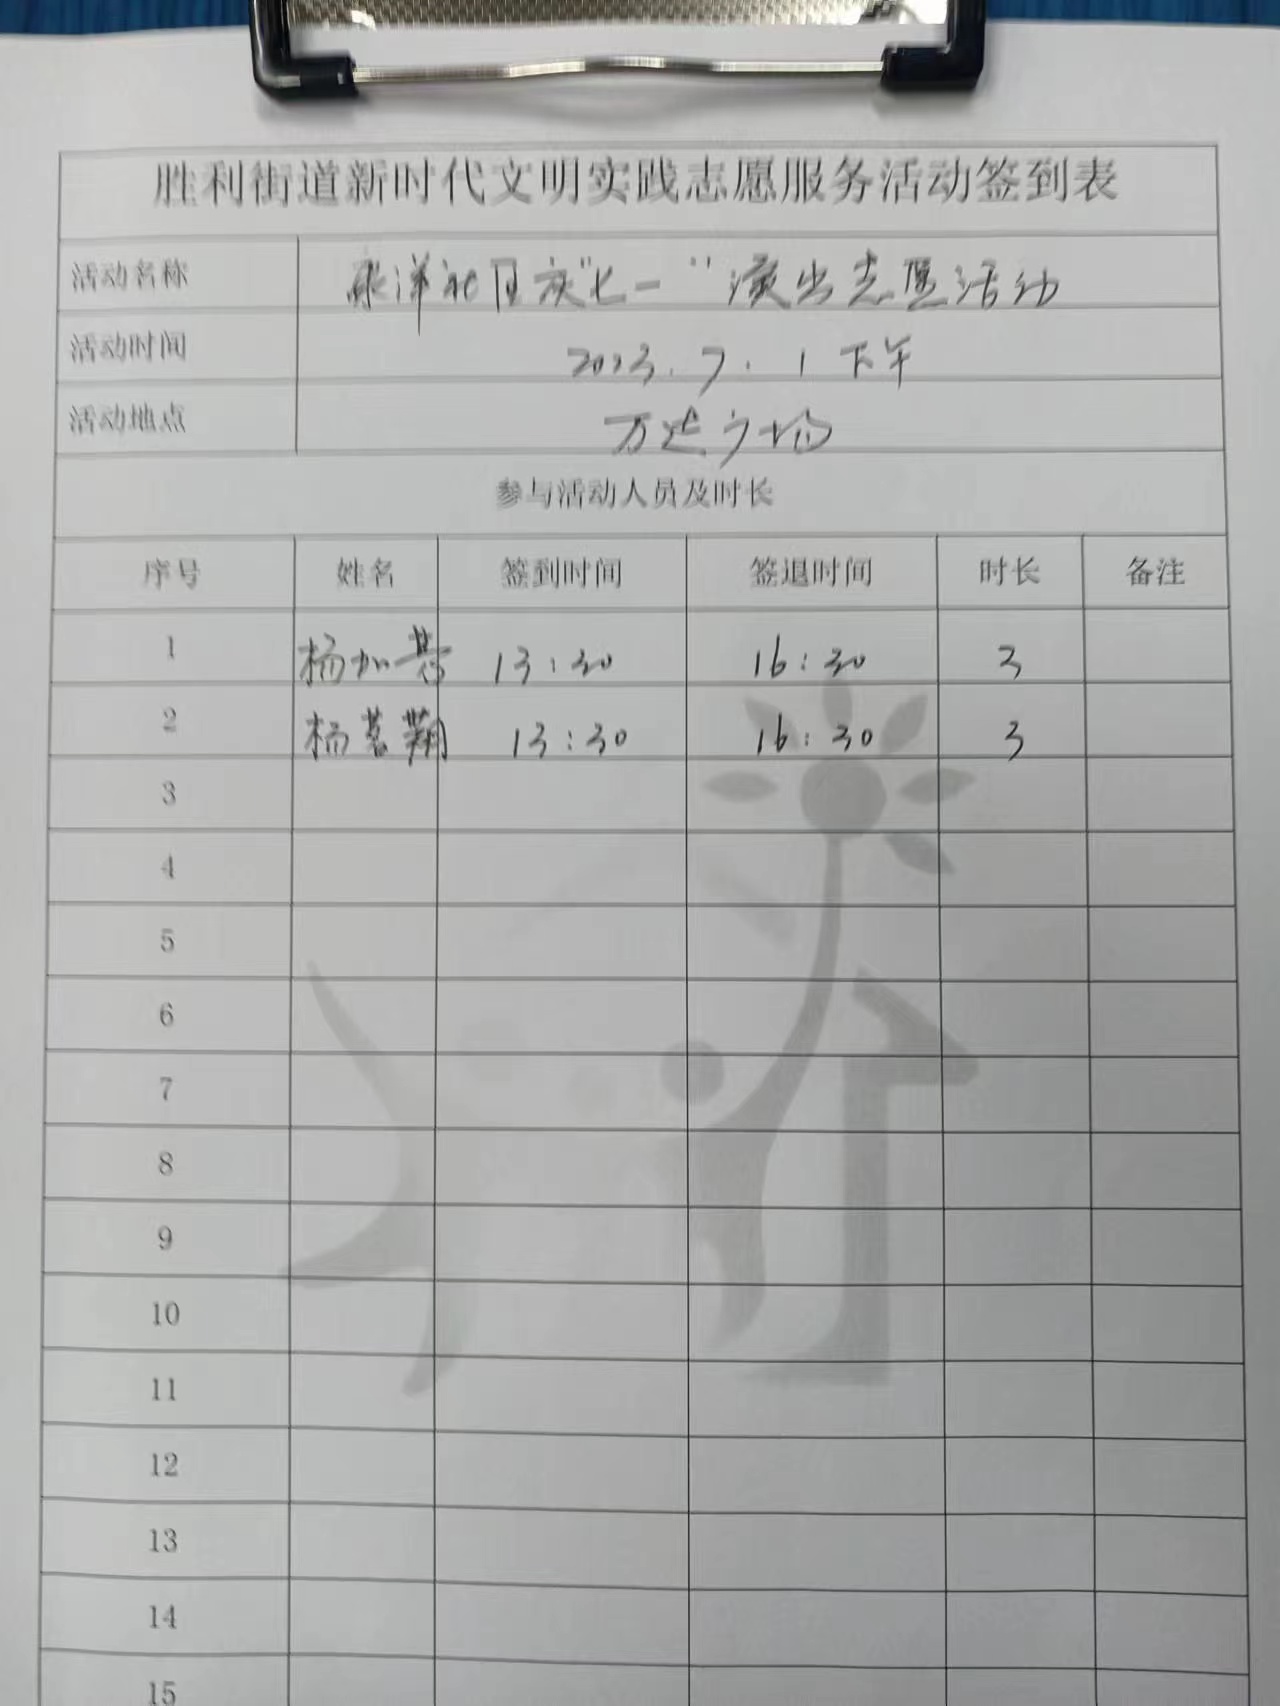 胜利街道新时代文明实践志愿服务活动签到表
活动名称 泉洋社区庆"七一"演出志愿活动
活动时间 2023.7.1下午
活动地点 万达广场
参与活动人员及时长
序号 姓名 签到时间 签退时间 时长 备注
1 杨加 13:30 16:30 3
2 杨 13:30 16:30 3
3
4
5
6
7
8
9
10
11
12
13
14
15